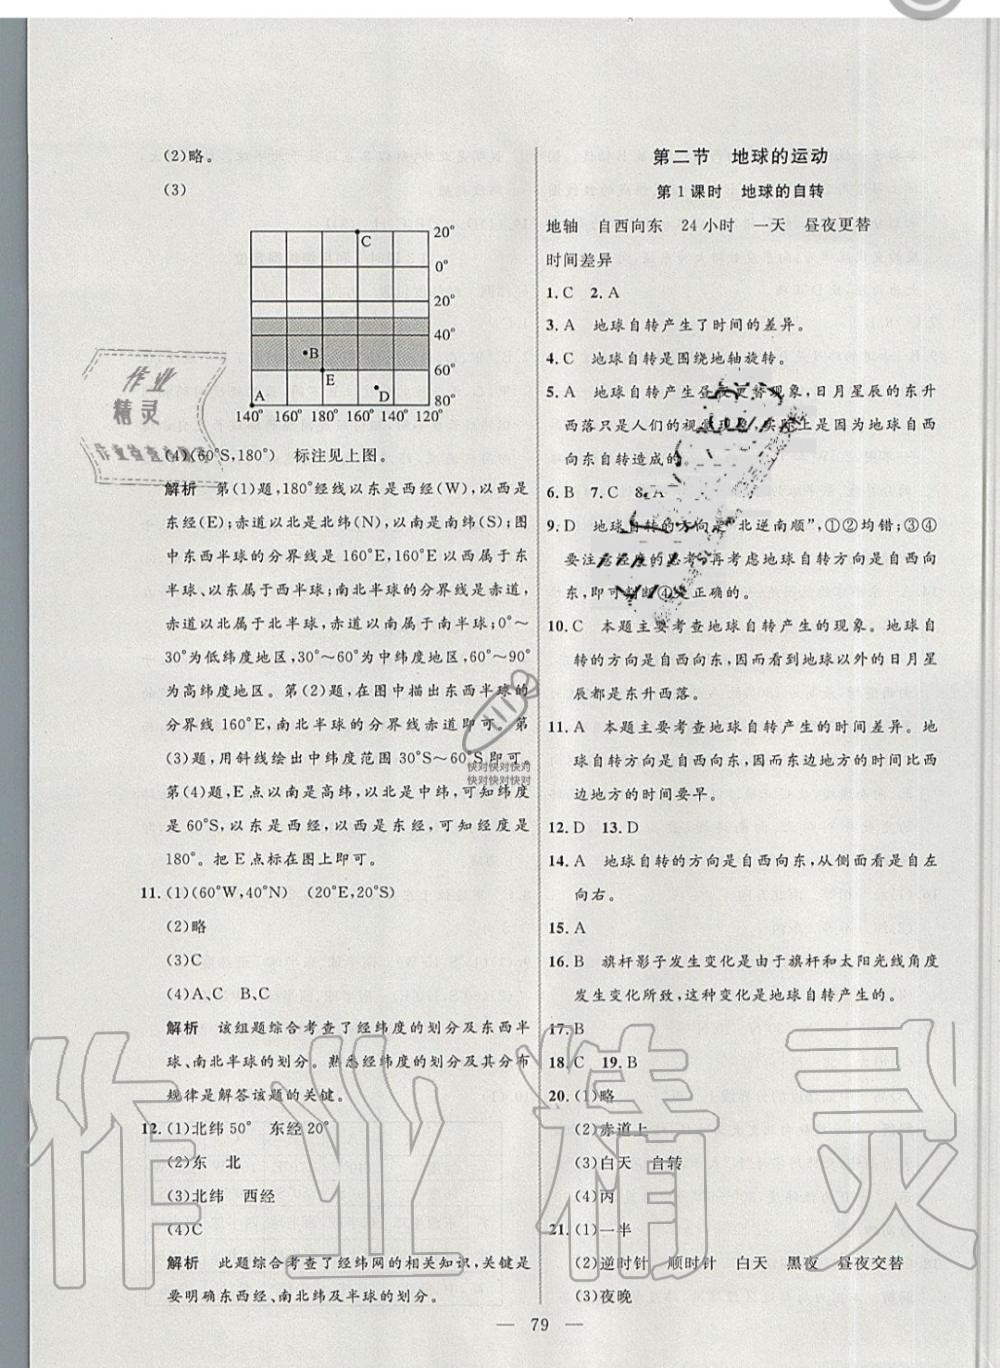 (2)略。
(3)
20°
0°
20°
40°
60°
80°
C
B
E
A
D
140° 160° 180° 160° 140° 120°
(4)(60°S,180°) 标注见上图。
解析 第(1)题,180°经线以东是西经(W),以西是
东经(E);赤道以北是北纬(N),以南是南纬(S);图
中东西半球的分界线是 160°E,160°E 以西属于东
半球、以东属于西半球,南北半球的分界线是赤道,
赤道以北属于北半球,赤道以南属于南半球;0°～
30°为低纬度地区,30°～60°为中纬度地区,60°～90°
为高纬度地区。第(2)题,在图中描出东西半球的
分界线 160°E,南北半球的分界线赤道即可。第
(3)题,用斜线绘出中纬度范围 30°S～60°S即可。
第(4)题,E点以南是高纬,以北是中纬,可知纬度
是 60°S,以东是西经,以西是东经,可知经度是
180°。把 E 点标在图上即可。
11.(1)(60°W,40°N) (20°E,20°S)
(2)略
(3)C
(4)A、C B、C
解析 该组题综合考查了经纬度的划分及东西半
球、南北半球的划分。熟悉经纬度的划分及其分布
规律是解答该题的关键。
12.(1)北纬 50° 东经 20°
(2)东 北
(3)北纬 西经
(4)C
解析 此题综合考查了经纬网的相关知识,关键是
要明确东西经、南北纬及半球的划分。
第二节 地球的运动
第 1 课时 地球的自转
地轴 自西向东 24 小时 一天 昼夜更替
时间差异
1. C 2. A
3. A 地球自转产生了时间的差异。
4. C 地球自转是围绕地轴旋转。
5. A 地球自转产生昼夜更替现象,日月星辰的东升
西落只是人们的视觉现象,实际上是因为地球自西
向东自转造成的。
6. B 7. C 8. A
9. D 地球自转的方向是“北逆南顺”,①②均错;③④
要注意经度的思考,再考虑地球自转方向是自西向
东,即可判断④是正确的。
10. C 本题主要考查地球自转产生的现象。地球自
转的方向是自西向东,因而看到地球以外的日月星
辰都是东升西落。
11. A 本题主要考查地球自转产生的时间差异。地
球自转的方向是自西向东,因而东边地方的时间比西
边地方的时间要早。
12. D 13. D
14. A 地球自转的方向是自西向东,从侧面看是自左
向右。
15. A
16. B 旗杆影子发生变化是由于旗杆和太阳光线角度
发生变化所致,这种变化是地球自转产生的。
17. B
18. C 19. B
20.(1)略
(2)赤道上
(3)白天 自转
(4)丙
21.(1)一半
(2)逆时针 顺时针 白天 黑夜 昼夜交替
(3)夜晚
— 79 —
作业
精灵
快对快对快对
快对快对快对
作业精灵